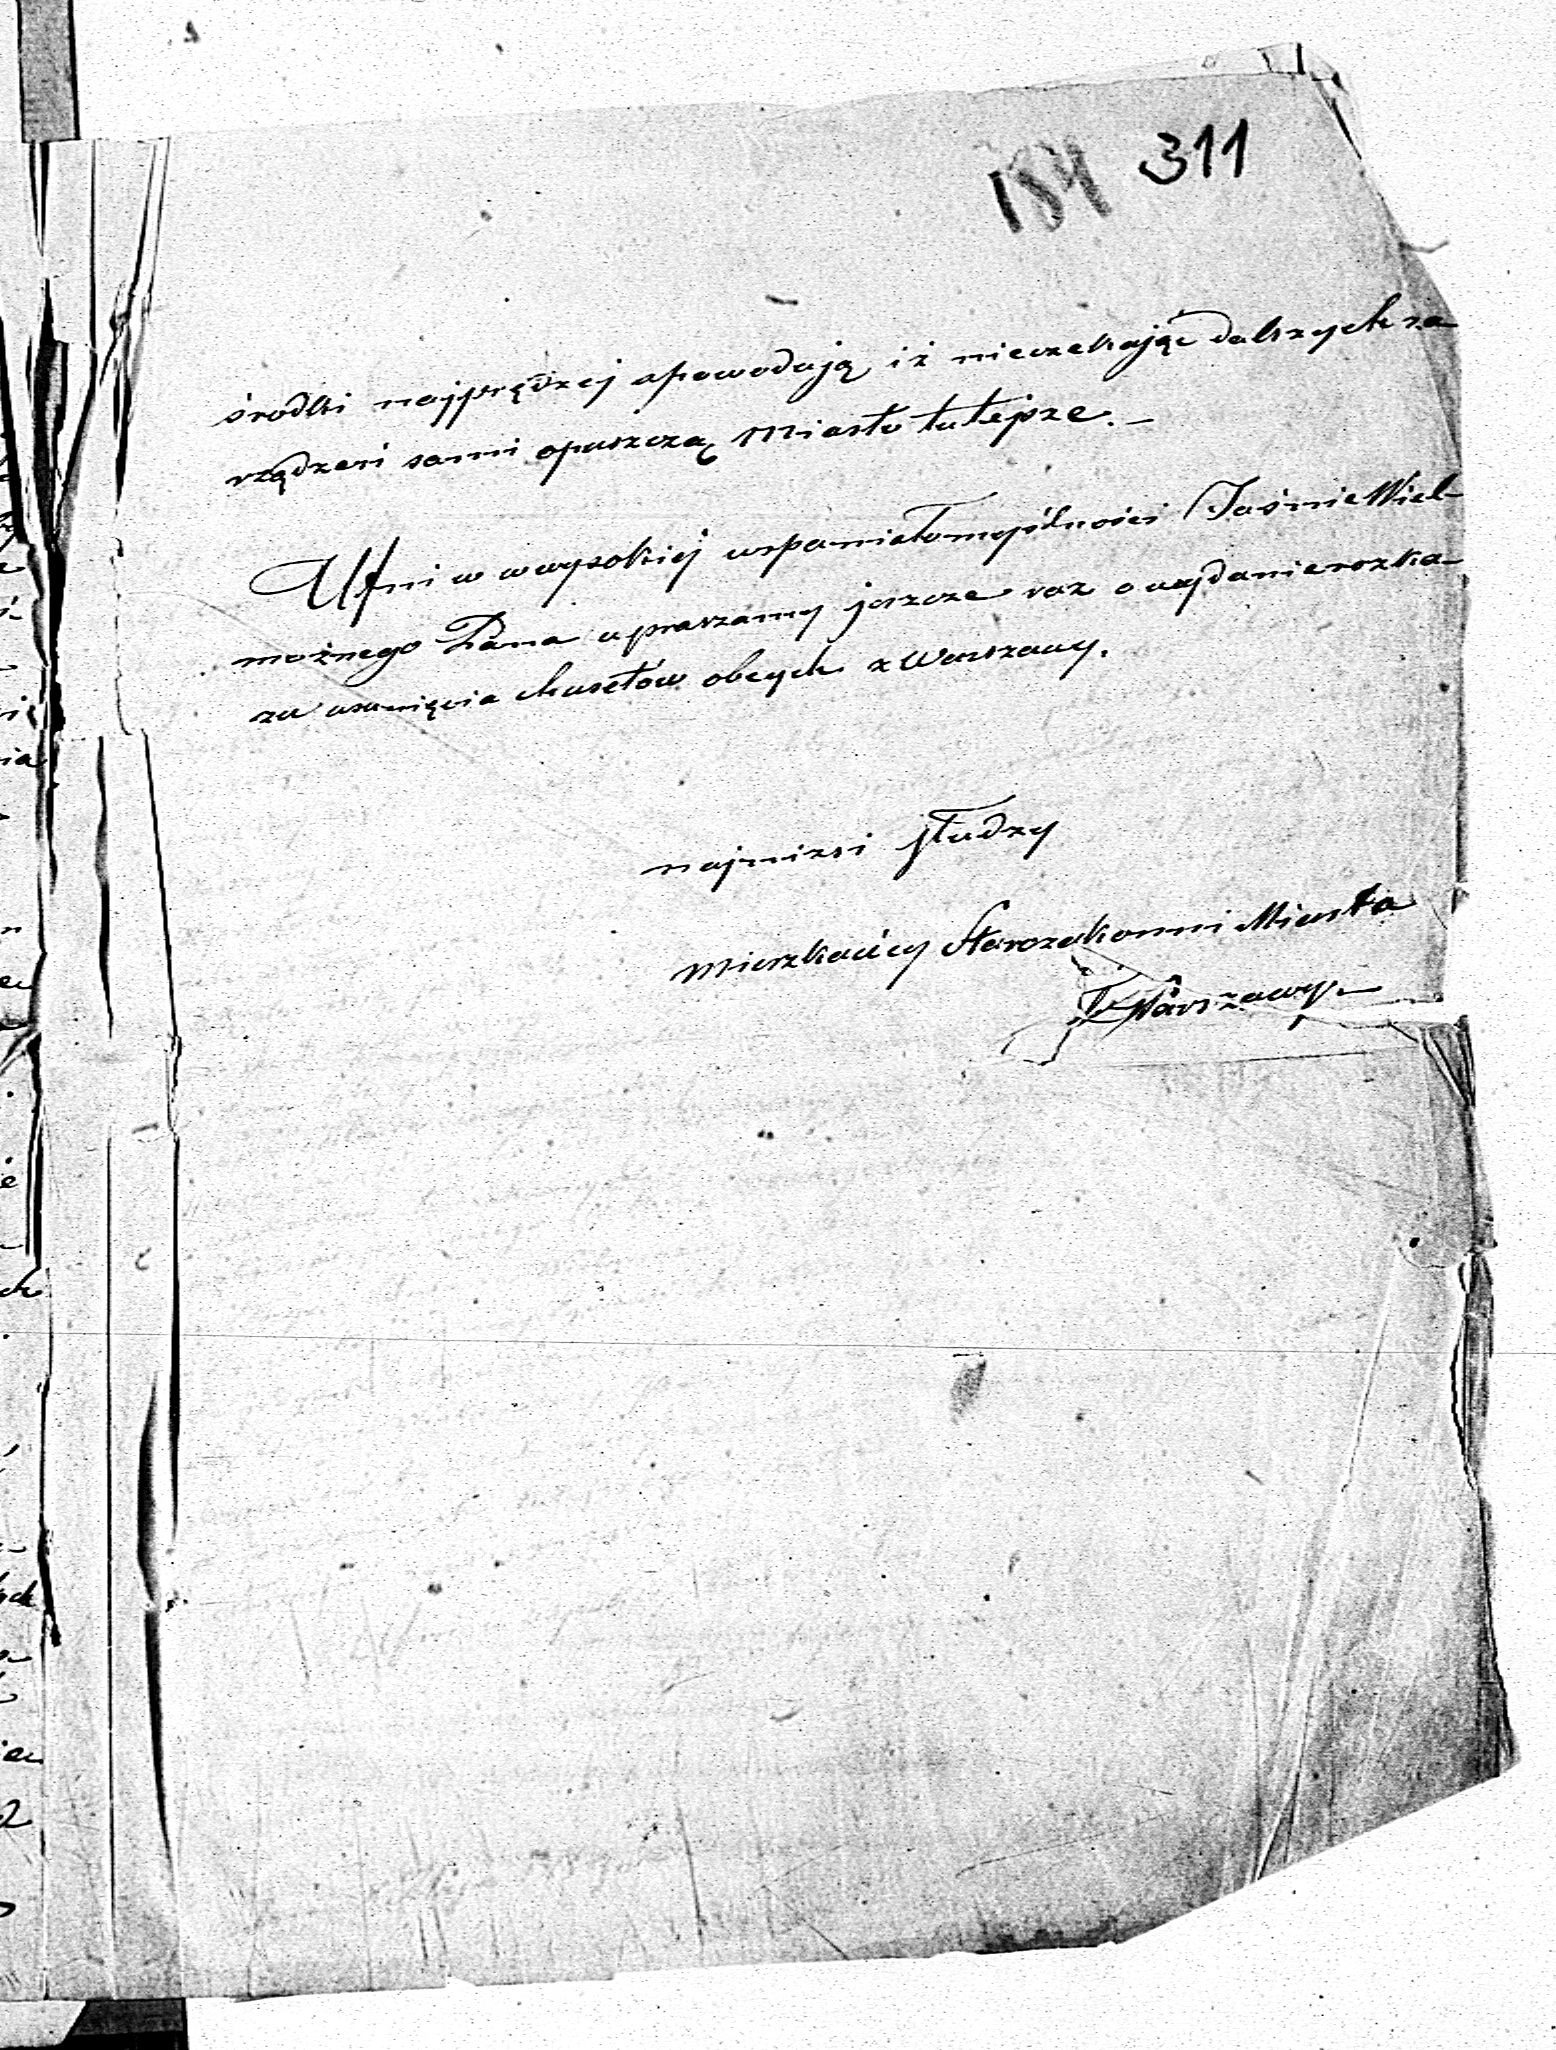 184 311
środki najprędzej spowodują iż nieczekając dalszych za
rządzeń sami opuszczą Miasto tutejsze. —
Ufni w wysokiej wspaniałomyślności JaśnieWiel-
możnego Pana upraszamy jeszcze raz o wydanie rozka-
zu usunięcia chusetów obcych z Warszawy.
najniżsi słudzy
Mieszkańcy Starozakonni Miasta
Warszawy. —